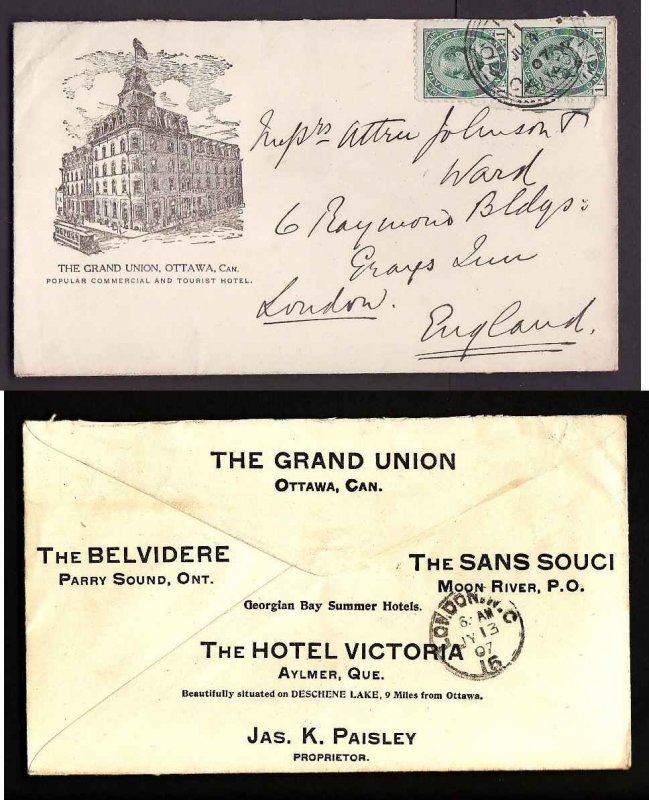 THE GRAND UNION, OTTAWA, CAN.
POPULAR COMMERCIAL AND TOURIST HOTEL.
Messrs Attree Johnson &
Ward
6 Raymond Bldgs:
Grays Inn
London.
England.
THE GRAND UNION
OTTAWA, CAN.
THE BELVIDERE
PARRY SOUND, ONT.
THE SANS SOUCI
MOON RIVER, P.O.
Georgian Bay Summer Hotels.
LONDON. W.C
6. AM
JY 13
07
16
THE HOTEL VICTORIA
AYLMER, QUE.
Beautifully situated on DESCHENE LAKE, 9 Miles from Ottawa.
JAS. K. PAISLEY
PROPRIETOR.